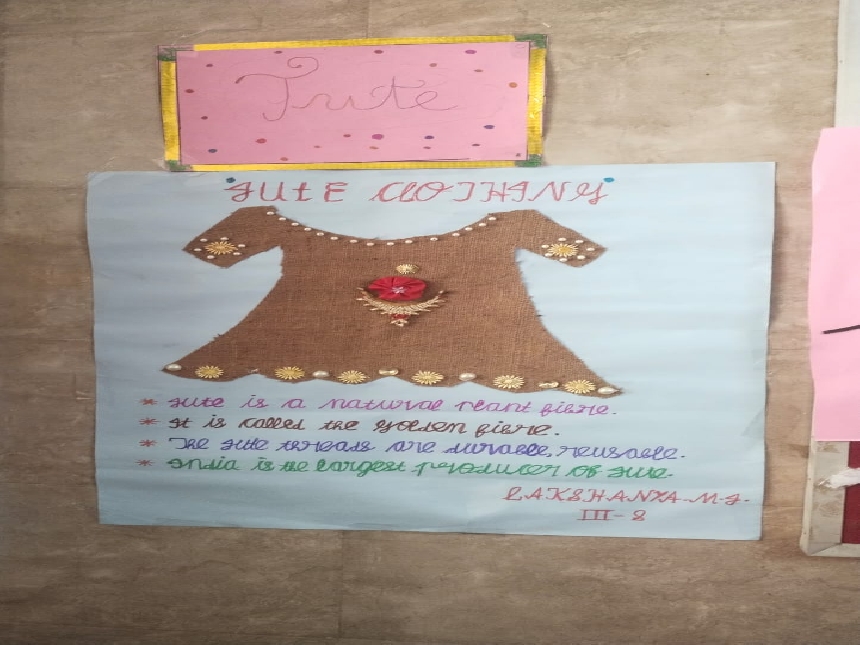 Jute
JUTE CLOTHING
* Jute is a natural plant fibre.
* It is called the golden fibre.
* The jute threads are durable, reusable.
* India is the largest producer of jute.
LAKSHANYA.M.J.
III - 8